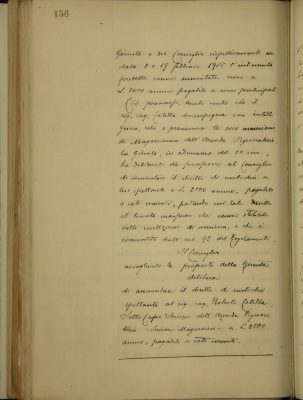 156
Giunta e del Consiglio rispettivamente in
data 8 e 19 febbraio 1915 l'indennità
predetta venne aumentata sino a
L. 2000 annue pagabili a rate mensili
Ciò premesso, tenuto conto che il
sig. rag. Catella disimpegna con intelli
genza, zelo e premura le sue mansioni
di Magazziniere dell'Azienda
la Giunta, in adunanza del
ha deliberato di proporre al Consiglio
di aumentare il diritto di custodia a
lui spettante a L. 2500 annue, pagabili
a rate mensili, portando così tale diritto
al limite massimo che venne stabilito
nelle condizioni di nomina, e che è
consentito dall'art. 92 del Regolamento.
Il Consiglio
accogliendo la proposta della Giunta
delibera
di aumentare il diritto di custodia
spettante al sig. rag. Catella,
Sotto Capo dell'Azienda
Magazziniere a L. 2500
annue, pagabili a rate mensili.